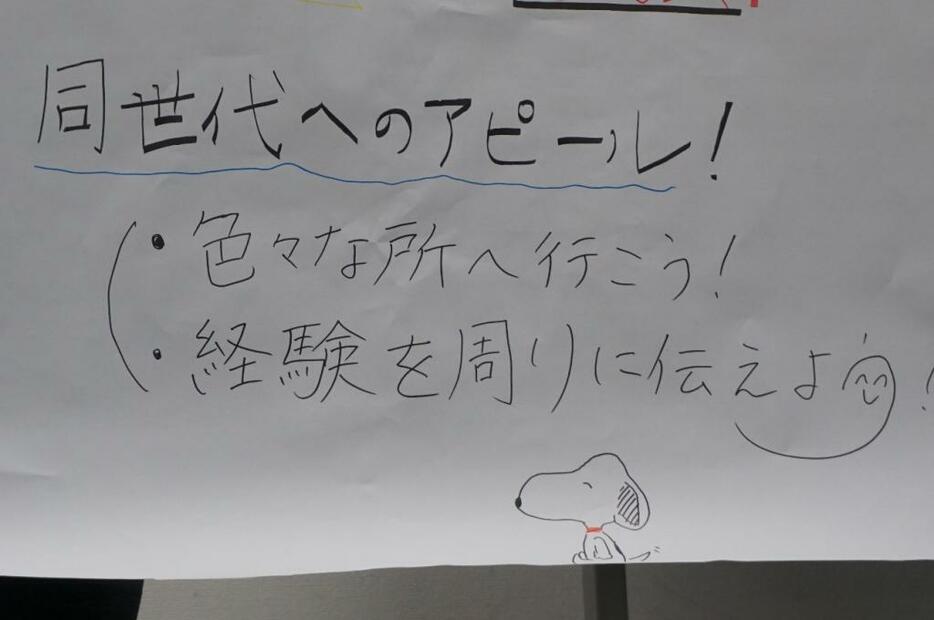 同世代へのアピール!
・色々な所へ行こう!
・経験を周りに伝えよう!